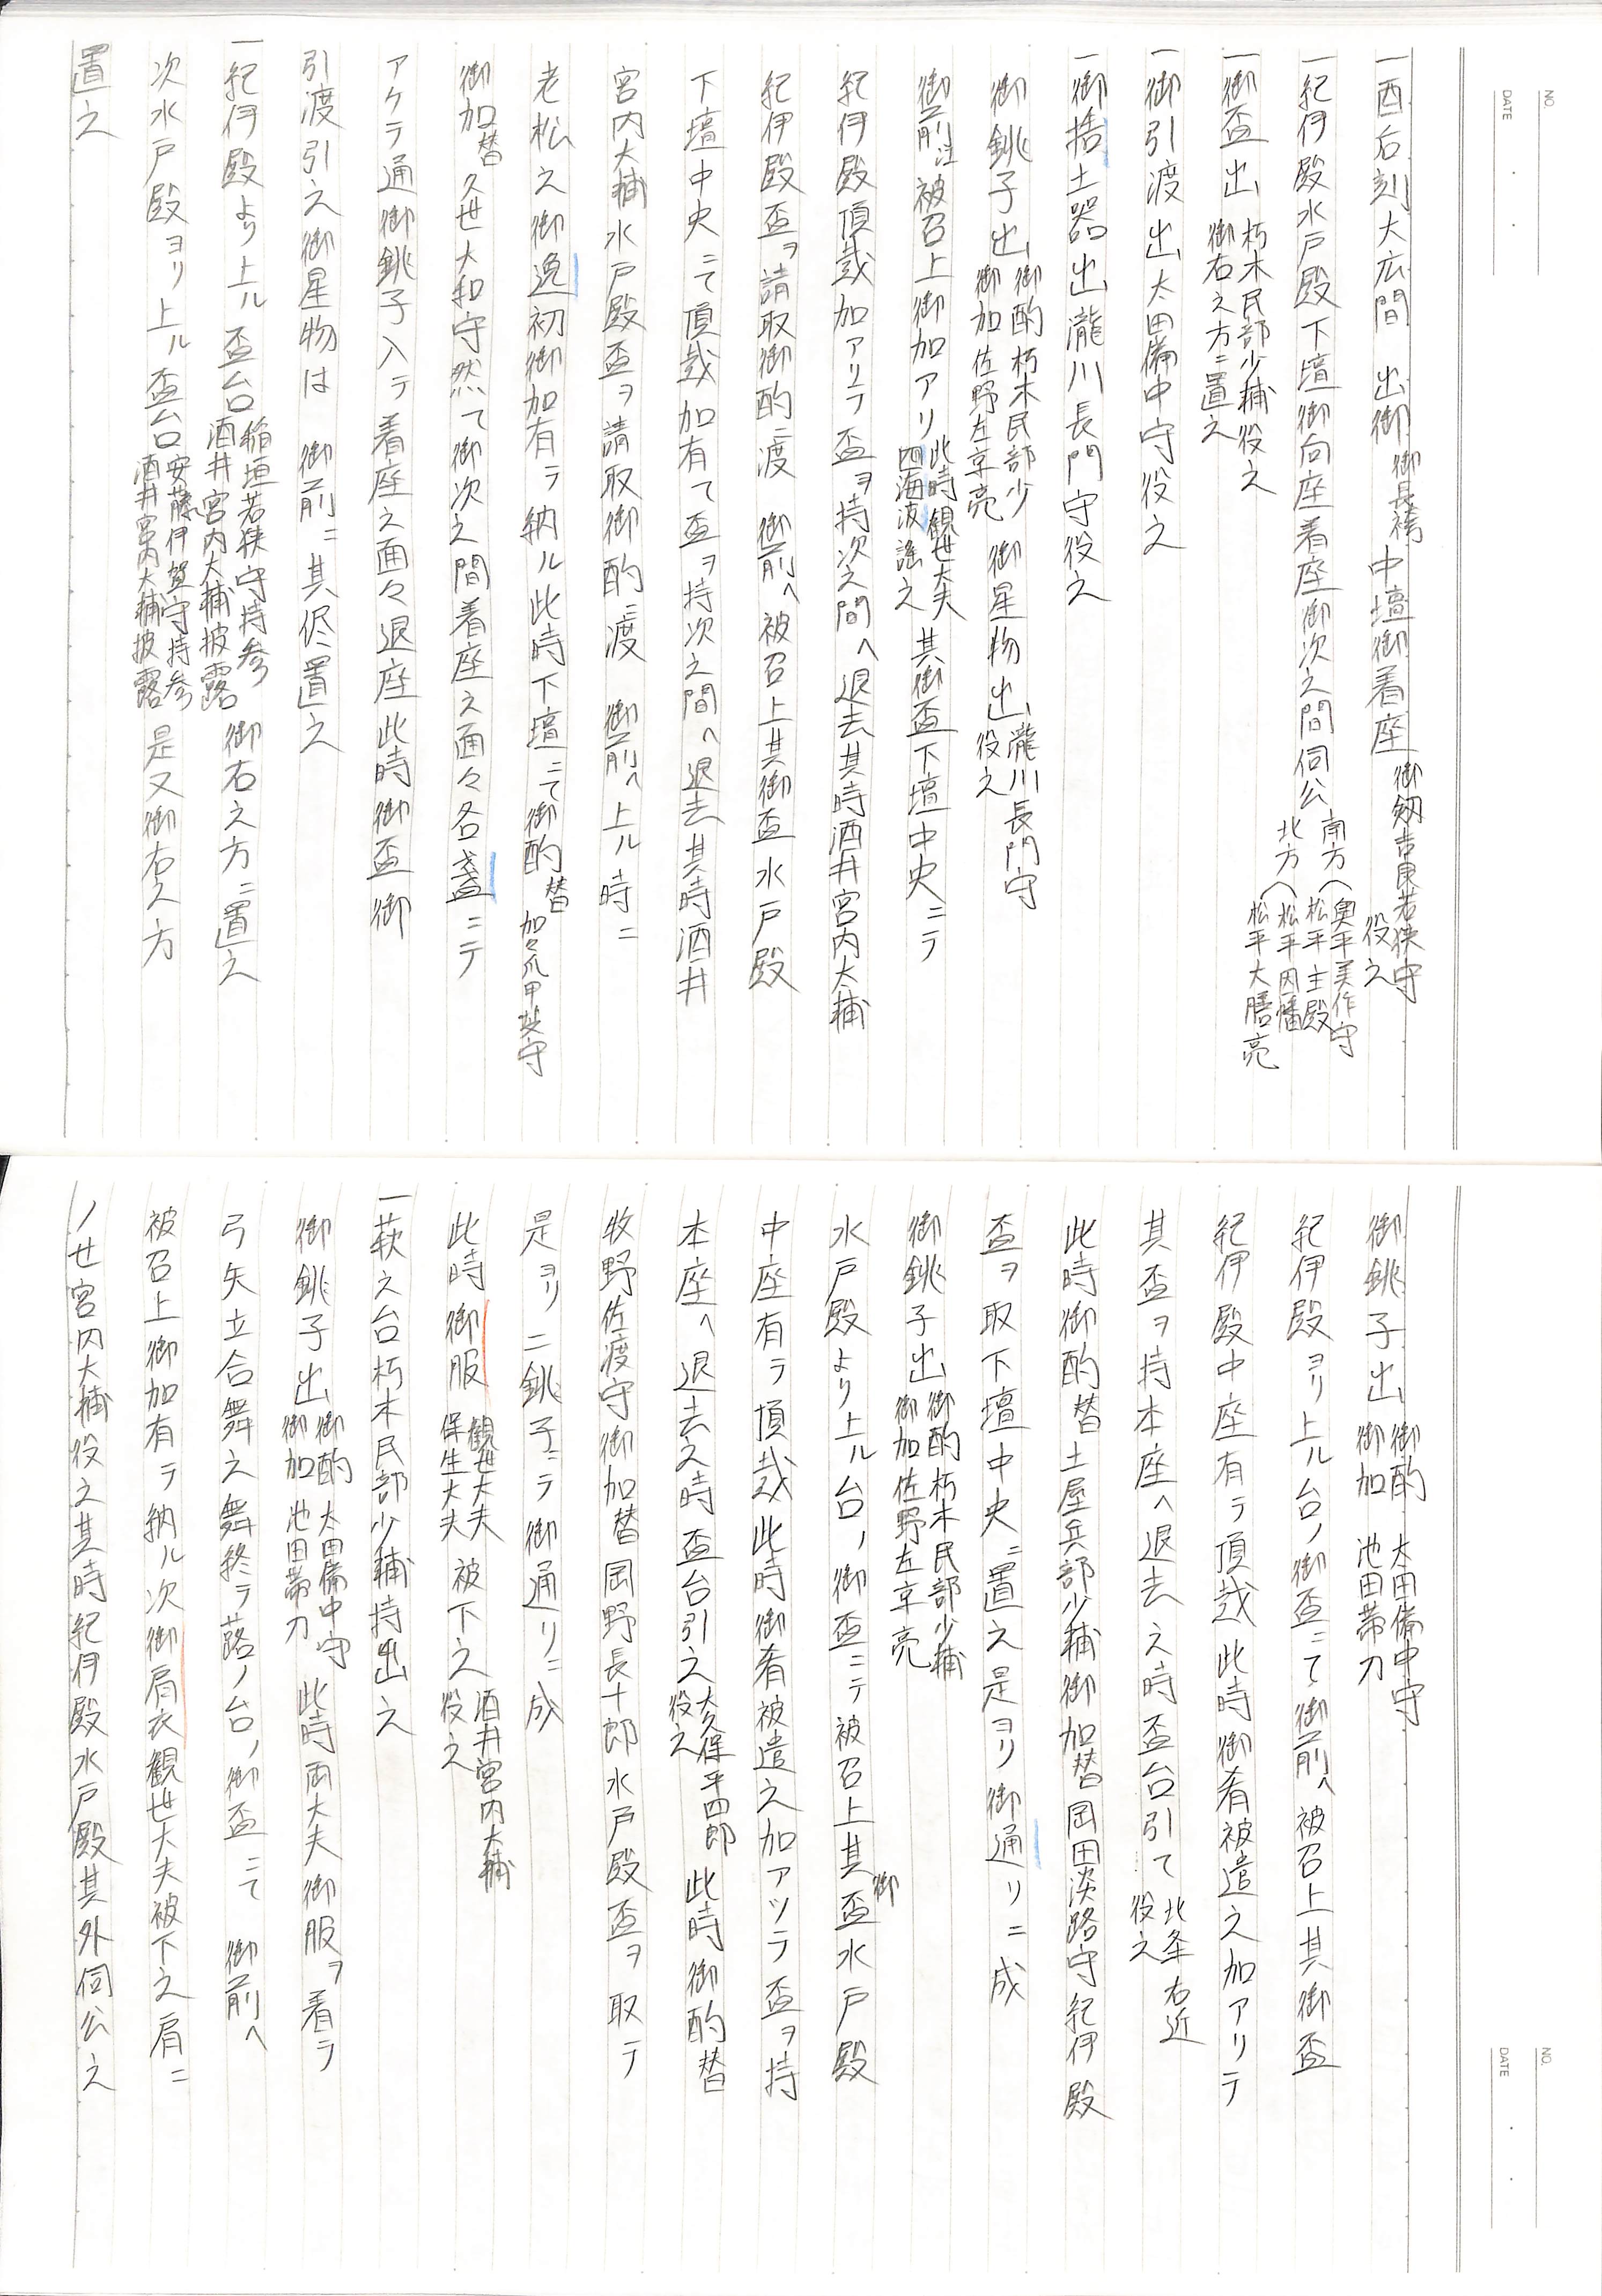 NO.
DATE
一酉后刻大広間 出御 御長袴 中壇御着座 御劔吉良若狭守役之
一紀伊殿水戸殿下壇御向座着座御次之間伺公 南方へ 奥平美作守 松平主殿 北方へ 松平因幡 松平大膳亮
一御盃出 朽木民部少輔役之 御右之方ニ置之
一御引渡出太田備中守役之
一御捨土器出瀧川長門守役之
御銚子出 御酌朽木民部少 御加佐野左京亮 御星物出 瀧川長門守役之
御前江被召上御加アリ 此時観世大夫四海波謡之 其御盃下壇中央ニテ
紀伊殿頂戴加アリテ盃ヲ持次之間へ退去其時酒井宮内大輔
紀伊殿盃ヲ請取御酌ニ渡 御前へ被召上其御盃水戸殿
下壇中央ニて頂戴加有て盃ヲ持次之間へ退去其時酒井
宮内大輔水戸殿盃ヲ請取御酌ニ渡 御前へ上ル時ニ
老松之御逸初御加有テ納ル此時下壇ニて御酌替 加々爪甲斐守
御加替 久世大和守然て御次之間着座之面々各盞ニテ
アケラ通御銚子入テ着座之面々退座此時御盃御
引渡引之御星物は 御前ニ其侭置之
一紀伊殿より上ル盃台 稲垣若狭守持参 酒井宮内大輔披露 御右之方ニ置之
次水戸殿ヨリ上ル盃台 安藤伊賀守持参 酒井宮内大輔披露 是又御右之方
置之
NO.
DATE
御銚子出 御酌 太田備中守 御加 池田帯刀
紀伊殿ヨリ上ル台ノ御盃ニて御前へ被召上其御盃
紀伊殿中座有テ頂戴此時御肴被遣之加アリテ
其盃ヲ持本座へ退去之時盃台引て 北条右近役之
此時御酌替土屋兵部少輔御加替岡田淡路守紀伊殿
盃ヲ取下壇中央ニ置之是ヨリ御通リニ成
御銚子出 御酌朽木民部少輔 御加佐野左京亮
水戸殿より上ル台ノ御盃ニテ被召上其御盃水戸殿
中座有テ頂戴此時御肴被遣之加アツテ盃ヲ持
本座へ退去之時盃台引之 大久保平四郎役之 此時御酌替
牧野佐渡守御加替岡野長十郎水戸殿盃ヲ取テ
是ヨリ二銚子ニテ御通リニ成
此時御服 観世大夫 保生大夫 被下之 酒井宮内大輔役之
一萩之台朽木民部少輔持出之
御銚子出 御酌 太田備中守 御加 池田帯刀 此時両大夫御服ヲ着テ
弓矢立合舞之舞終テ蕗ノ台ノ御盃ニて 御前へ
被召上御加有テ納ル次御肩衣観世大夫被下之肩ニ
ノセ宮内大輔役之其時紀伊殿水戸殿其外伺公之